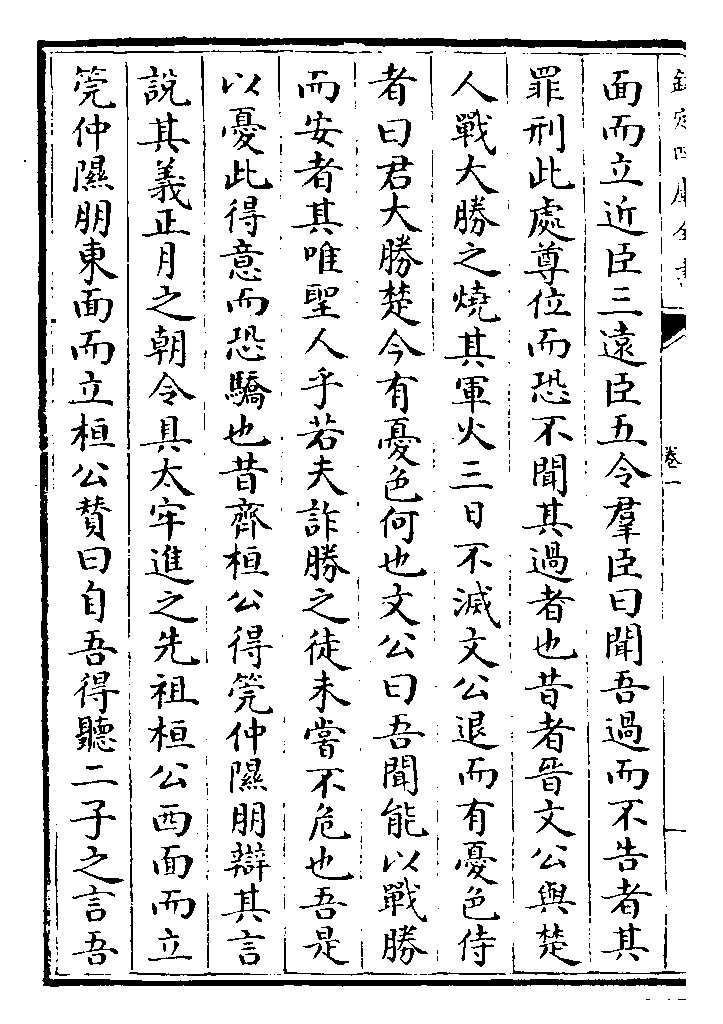 欽定四庫全書
卷一
面而立近臣三遠臣五令羣臣曰聞吾過而不告者其
罪刑此處尊位而恐不聞其過者也昔者晉文公與楚
人戰大勝之燒其軍火三日不滅文公退而有憂色侍
者曰君大勝楚今有憂色何也文公曰吾聞能以戰勝
而安者其唯聖人乎若夫詐勝之徒未嘗不危也吾是
以憂此得意而恐驕也昔齊桓公得筦仲隰朋辯其言
說其義正月之朝令具太牢進之先祖桓公西面而立
筦仲隰朋東面而立桓公賛曰自吾得聽二子之言吾